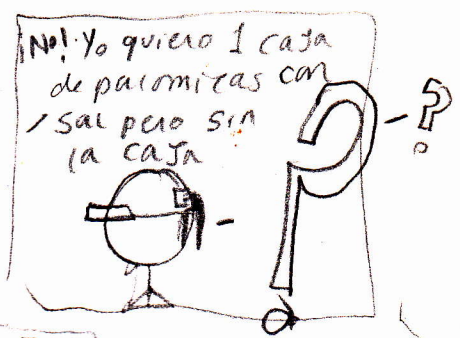 ¡No! Yo quiero 1 caja
de palomitas con
sal pero sin
la caja
?
?